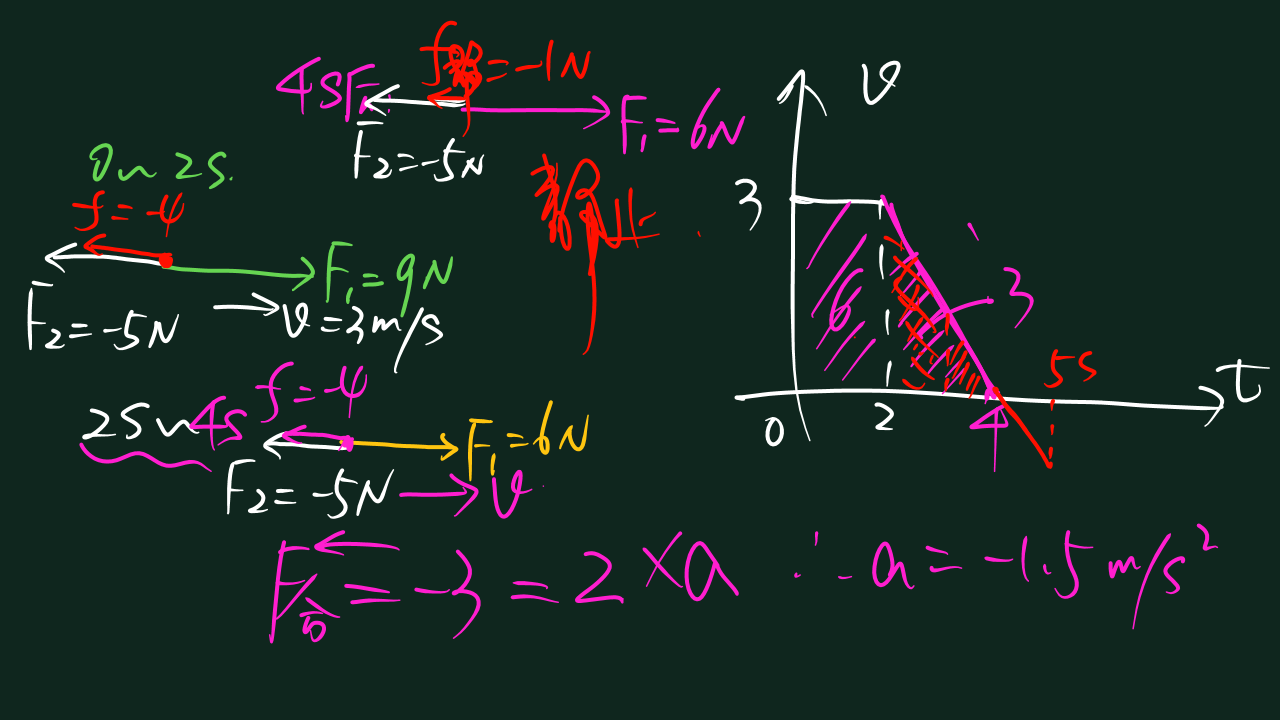 f静=-1N
4S
F₁=6N
F₂=-5N
0~2S.
f=-4
F₁=9N
F₂=-5N
v=3m/s
静止
2S~4S
f=-4
F₁=6N
F₂=-5N
v
F合=-3=2×a ∴a=-1.5m/s²
v
3
6
3
5S
t
0
2
4